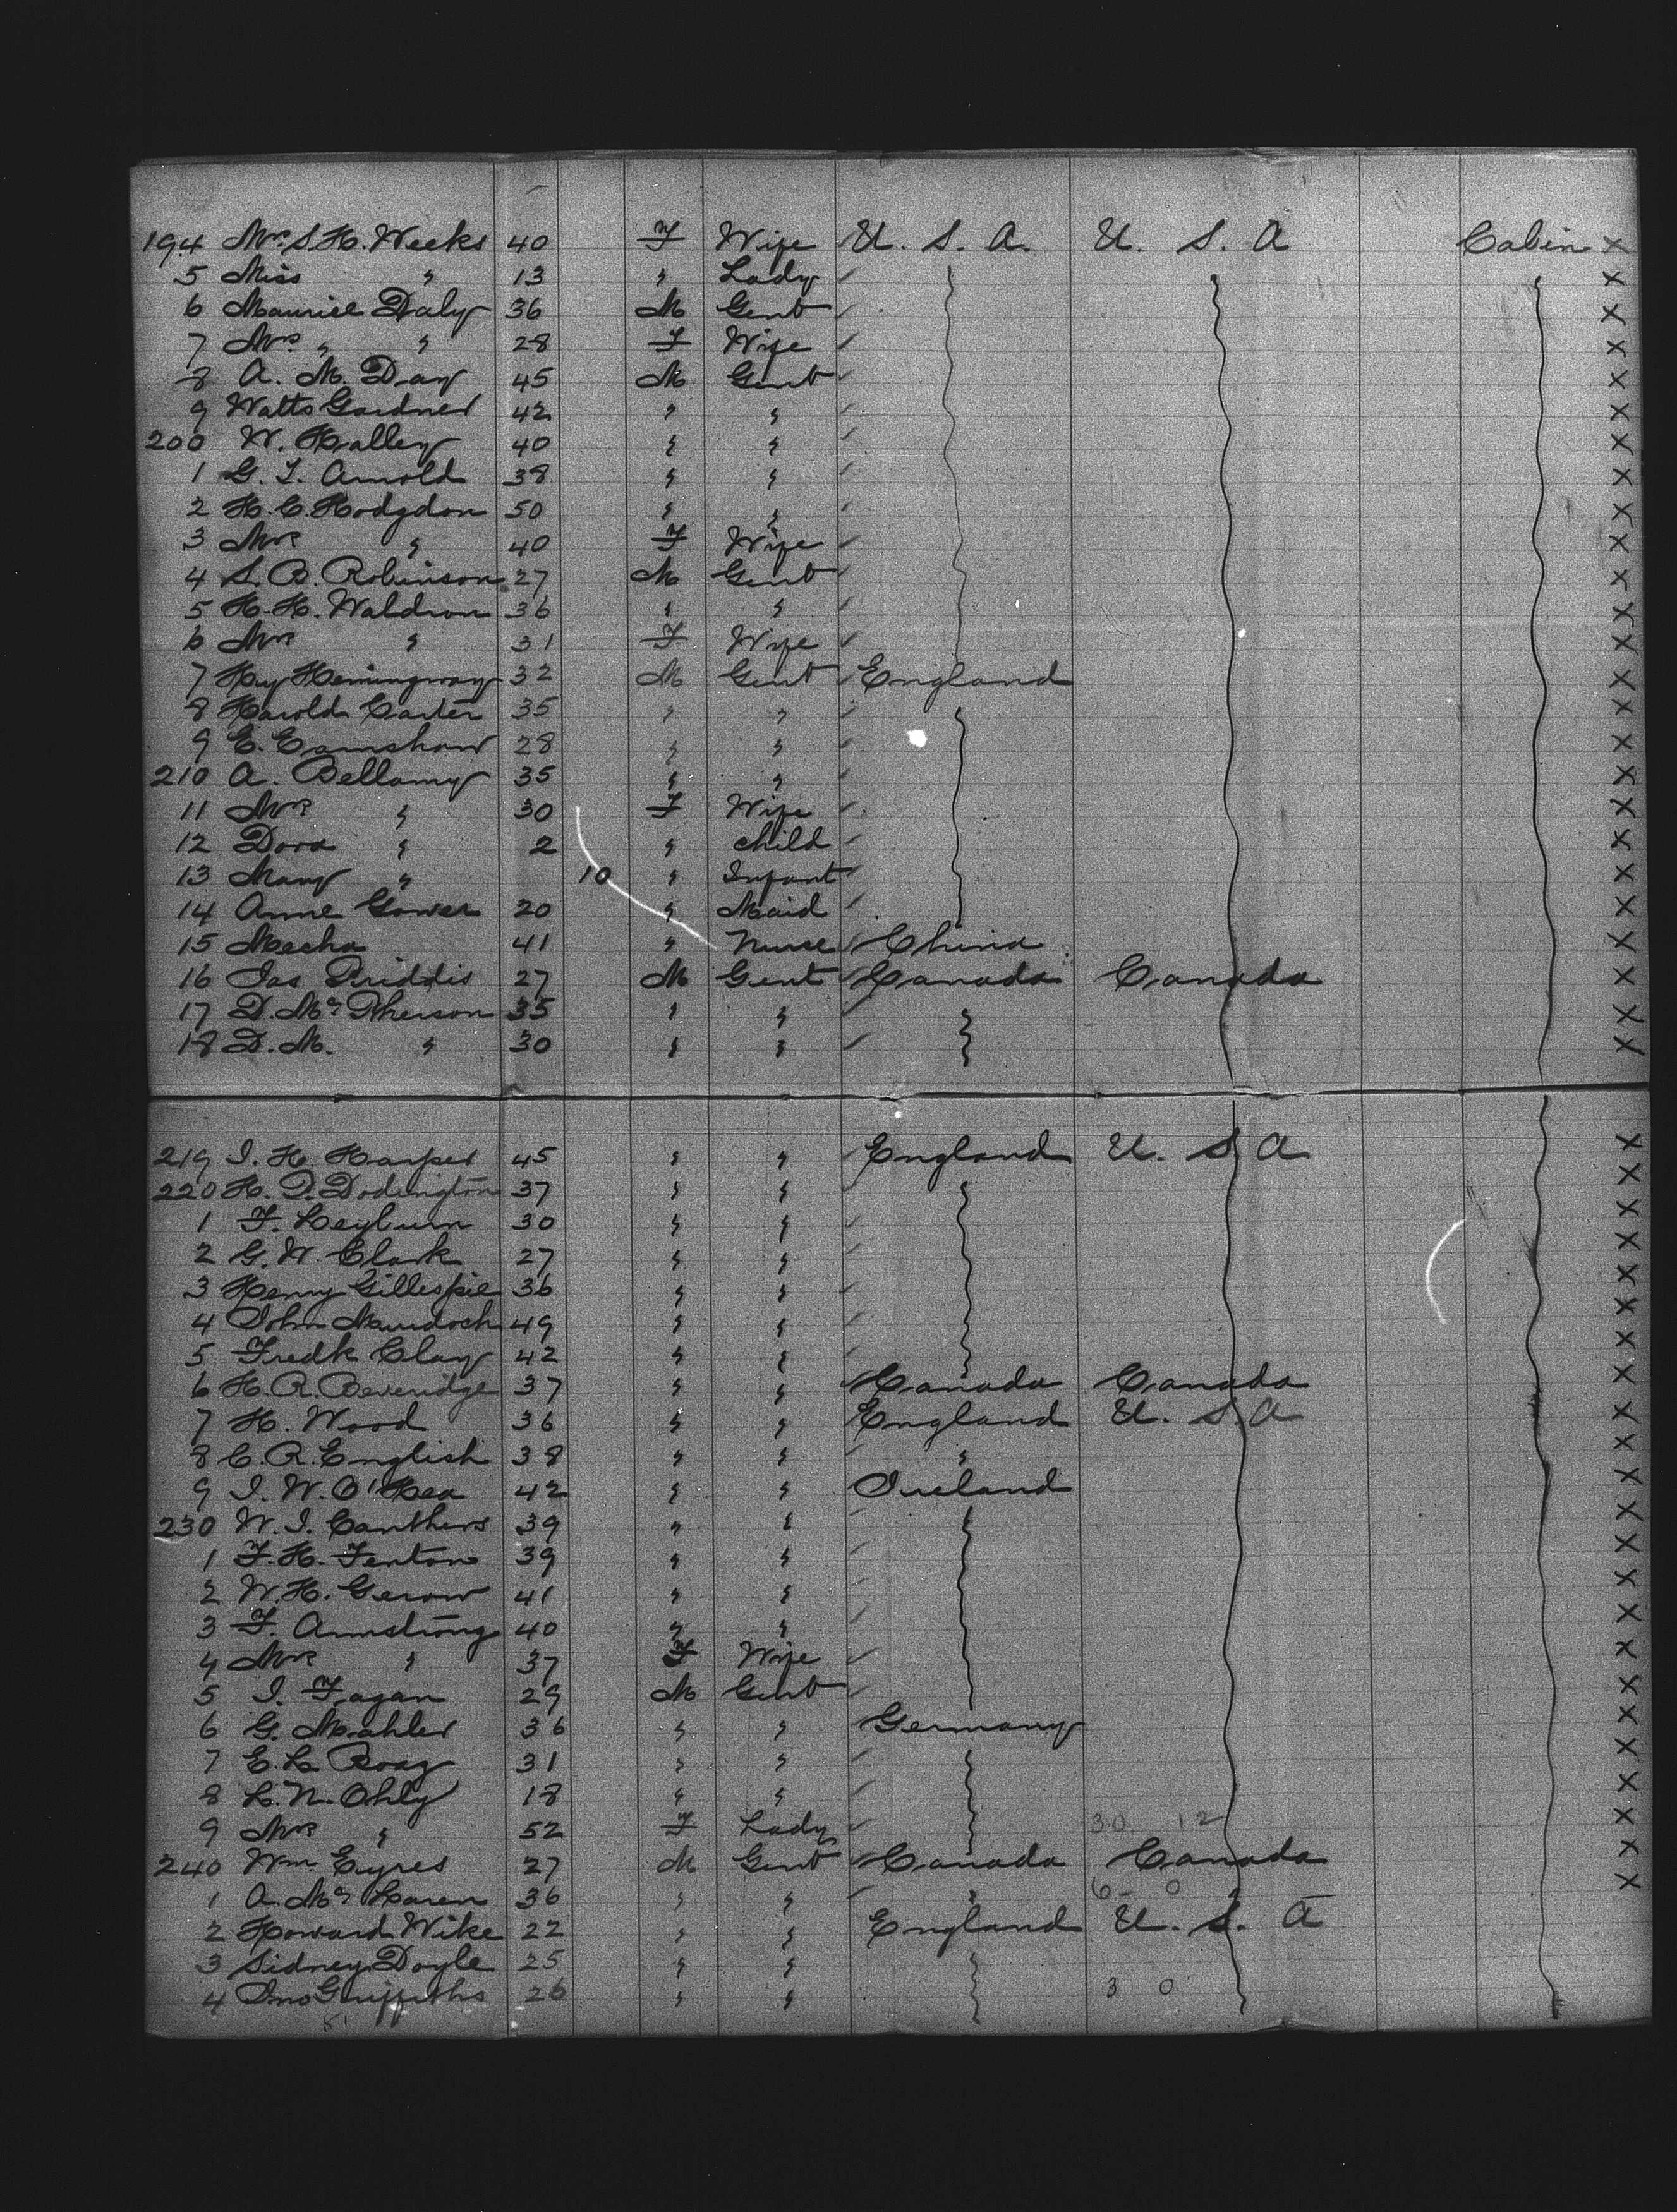 194 Mrs. S. H. Weeks 40 F Wife U. S. A. U. S. A Cabin x
5 Miss " 13 " Lady x
6 Maurice Daly 36 M Gent x
7 Mrs " " 28 F Wife x
8 A. M. Day 45 M Gent x
9 Watts Gardner 42 " " x
200 W. Halley 40 " " x
1 G. L. Arnold 38 " " x
2 H. C. Hodgdon 50 " " x
3 Mrs " 40 F Wife x
4 S. B. Robinson 27 M Gent x
5 H. H. Waldron 36 " " x
6 Mrs " 31 F Wife x
7 Hy Hemingway 32 M Gent England x
8 Harold Carter 35 " " x
9 E. Earnshaw 28 " " x
210 A. Bellamy 35 " " x
11 Mrs " 30 F Wife x
12 Dora " 2 " child x
13 Mary " 10 " Infant x
14 Anne Gower 20 " Maid x
15 Mecha 41 " Nurse China x
16 Jas Priddis 27 M Gent Canada Canada x
17 D. Mc Pherson 35 " " x
18 D. M. " 30 " " x
219 J. H. Harper 45 " " England U. S A x
220 H. P. Dodington 37 " " x
1 F. Leyburn 30 " " x
2 G. W. Clark 27 " " x
3 Henry Gillespie 36 " " x
4 John Murdoch 49 " " x
5 Fredk Clay 42 " " x
6 H. R. Beveridge 37 " " Canada Canada x
7 H. Wood 36 " " England U. S. A x
8 C. R. English 38 " " " x
9 J. W. O'Hea 42 " " Ireland x
230 W. J. Carothers 39 " " x
1 F. H. Fenton 39 " " x
2 W. H. Gerow 41 " " x
3 F. Armstrong 40 " " x
4 Mrs " 37 F Wife x
5 J. Fagan 29 M Gent x
6 G. Mahler 36 " " Germany x
7 E. L. Roag 31 " " x
8 L. N. Ohly 18 " " x
9 Mrs " 52 F Lady 30. 12 x
240 Wm Eyres 27 M Gent Canada Canada x
1 A. Mc Laren 36 " " " 6 - 0 x
2 Howard Wike 22 " " England U. S. A
3 Sidney Doyle 25 " "
4 Jno Griffiths 26 " " 3 0